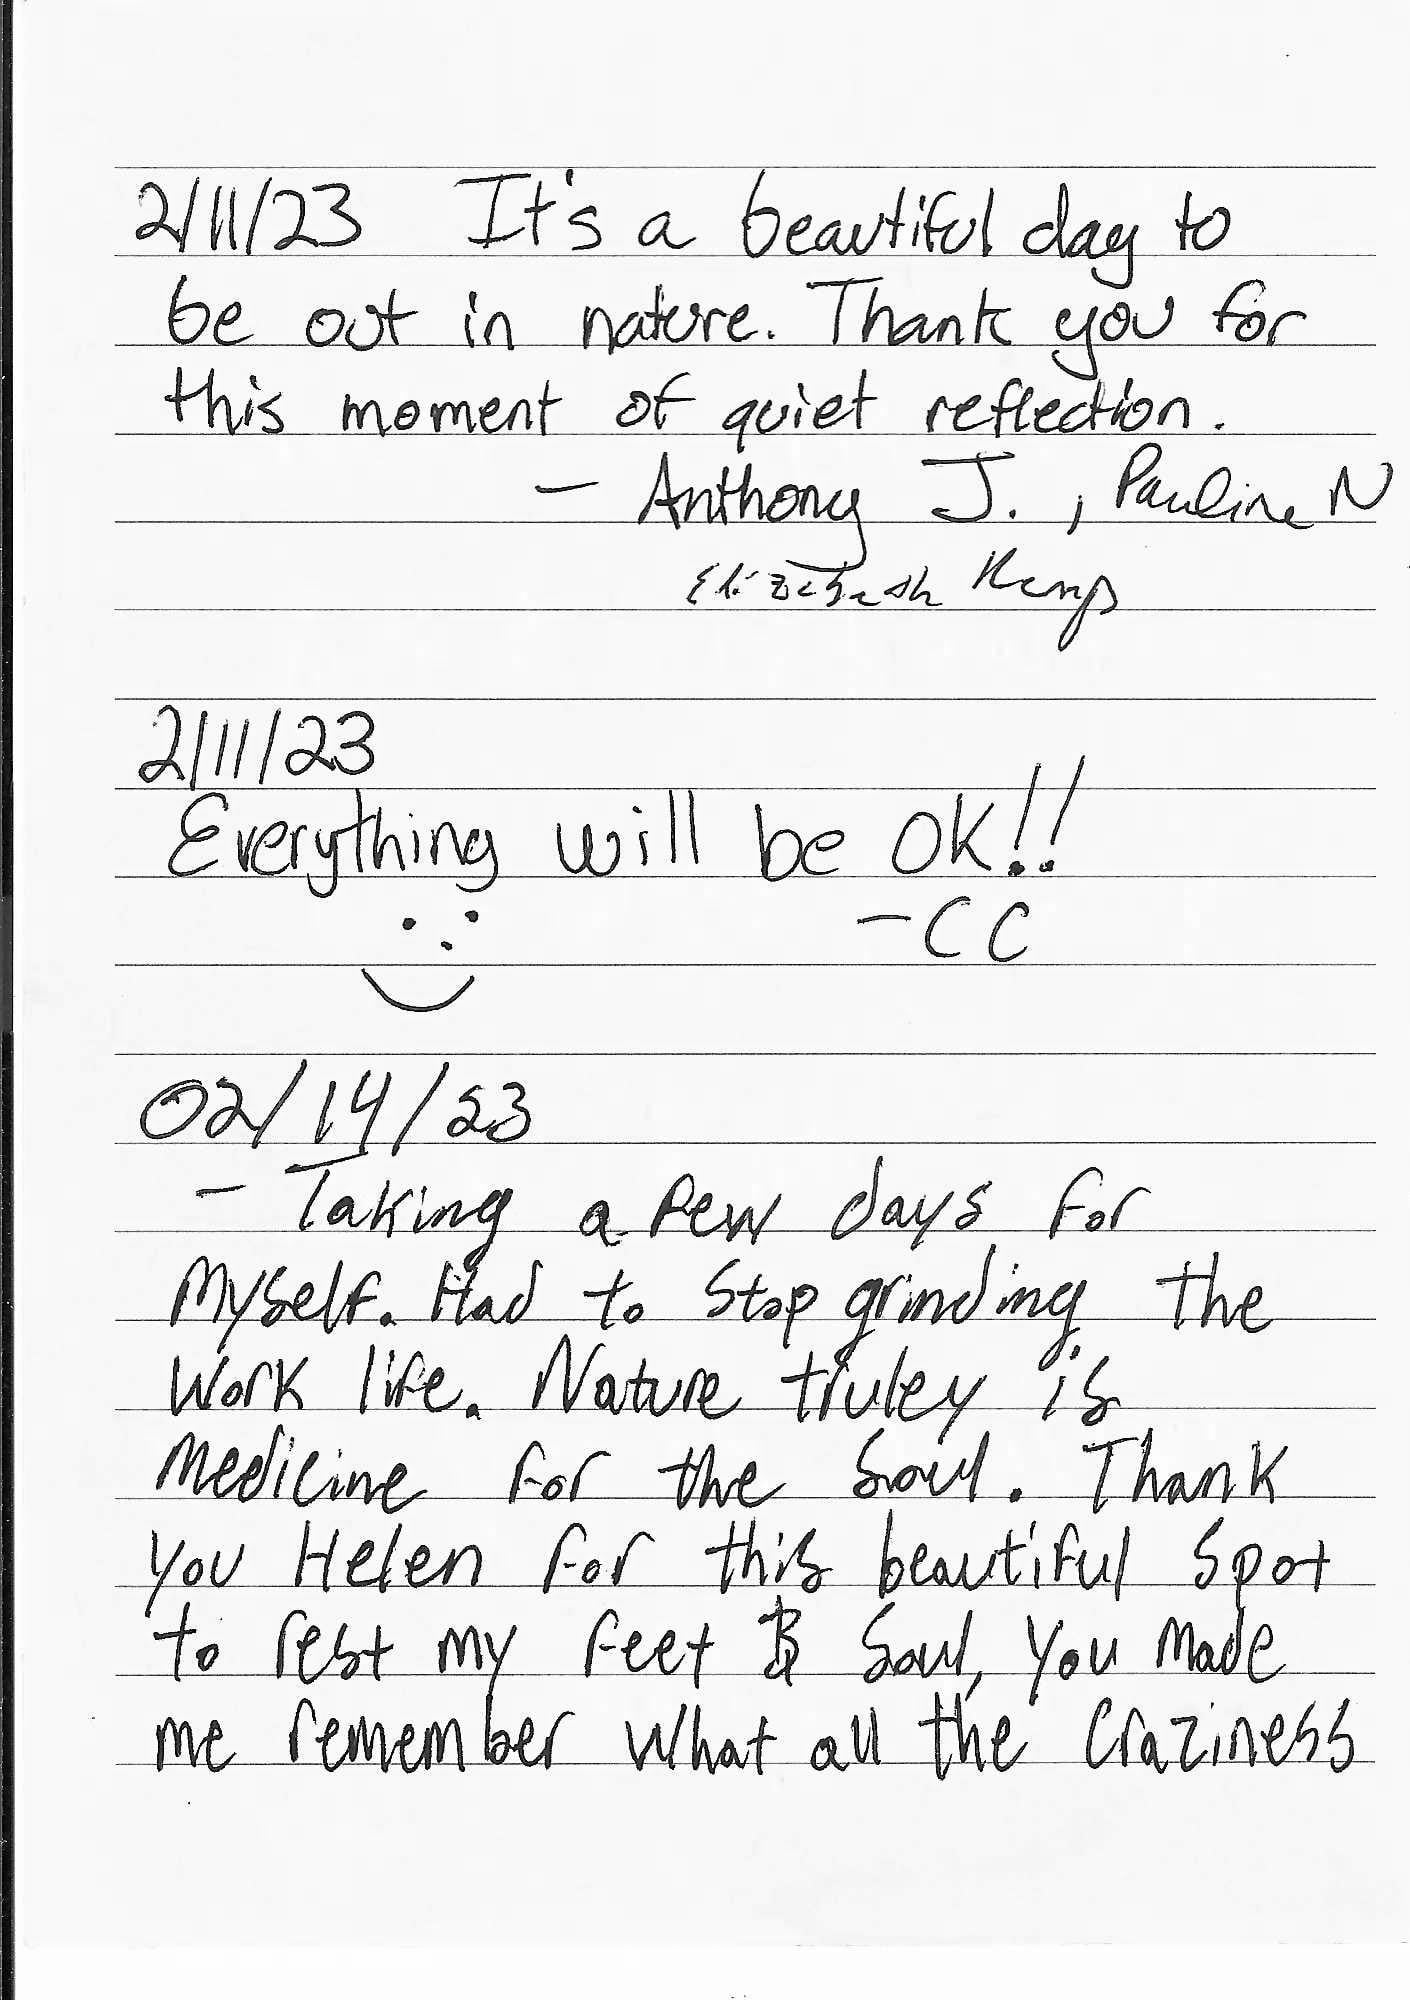 2/11/23 It's a beautiful day to
be out in nature. Thank you for
this moment of quiet reflection.
- Anthony J., Pauline N
Elizabeth Kemp
2/11/23
Everything will be OK!!
- C C
02/14/23
- Taking a few days for
Myself. Had to stop grinding the
Work life. Nature truley is
Medicine for the Soul. Thank
you Helen for this beautiful spot
to rest my feet & Soul, you made
me remember what all the craziness